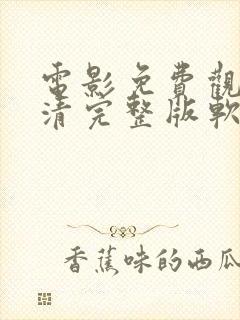 電影免費觀
清完整版軟
香蕉味的西瓜